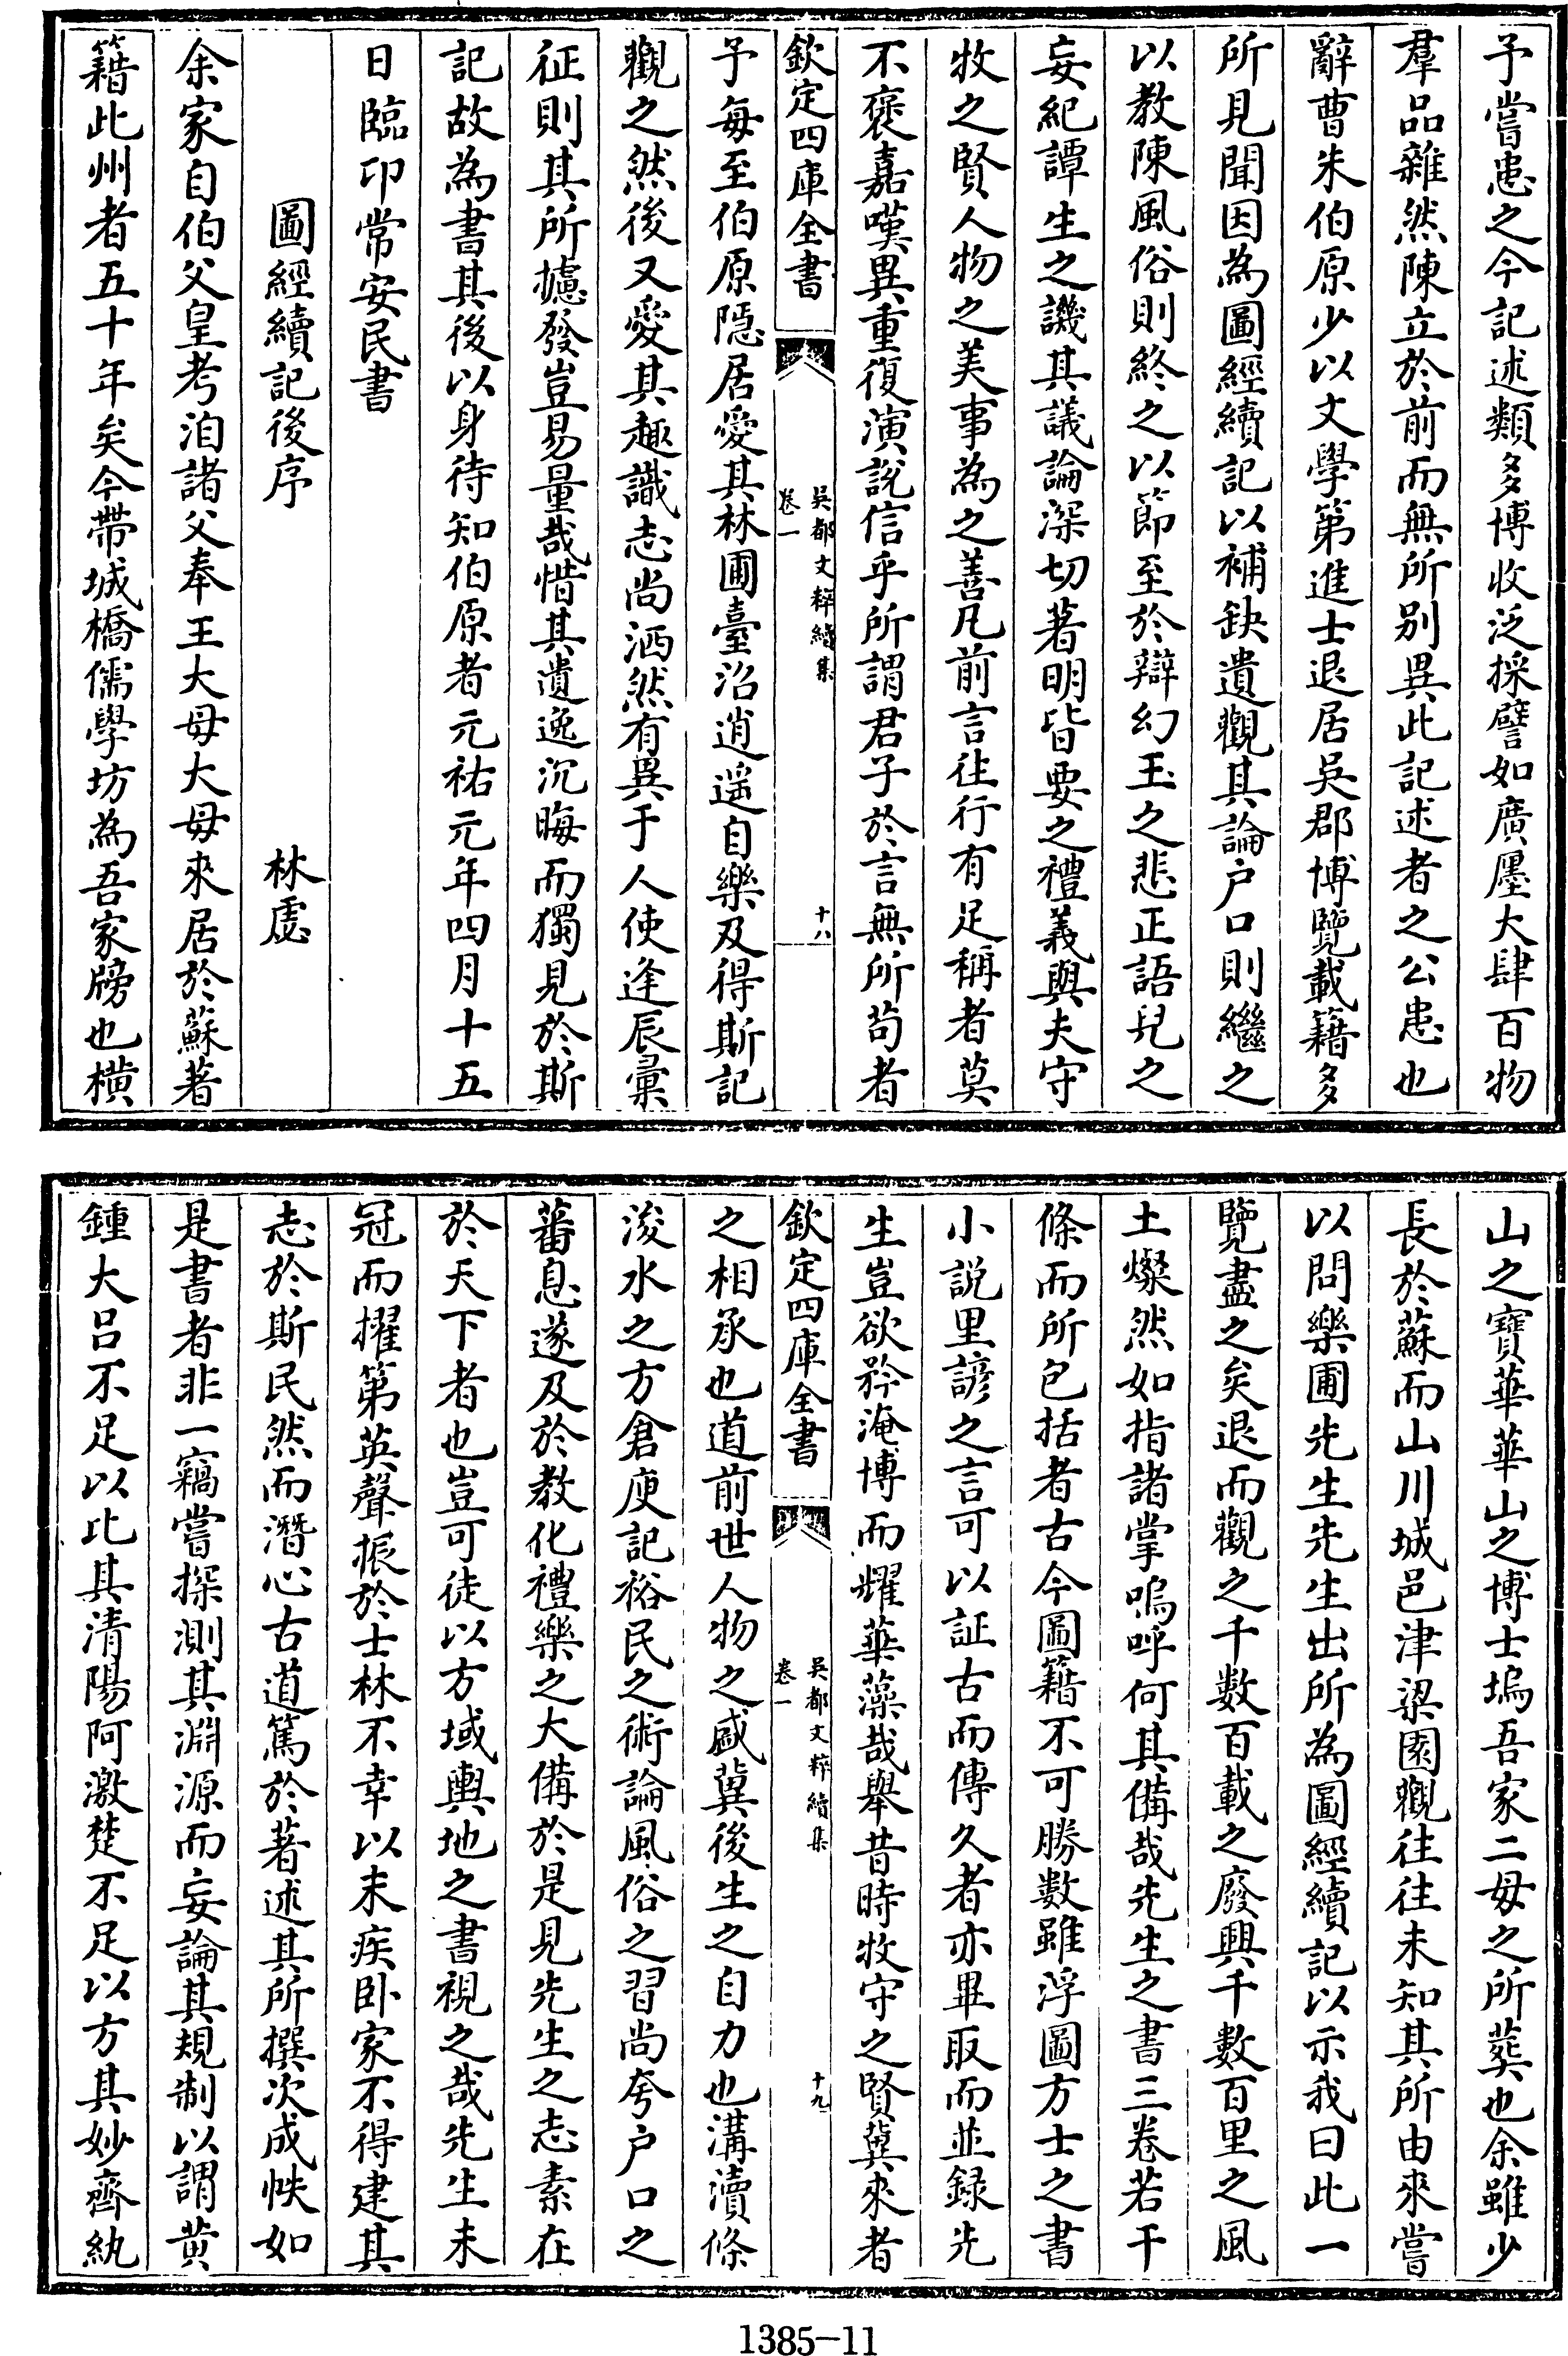 予嘗患之今記述類多博收泛採譬如廣㕓大肆百物
羣品雜然陳立於前而無所别異此記述者之公患也
辭曹朱伯原少以文學第進士退居吳郡博覽載籍多
所見聞因為圖經續記以補缺遺觀其論户口則繼之
以教陳風俗則終之以節至於辯幻玉之悲正語兒之
妄紀譚生之譏其議論深切著明皆要之禮義與夫守
牧之賢人物之美事為之善凡前言往行有足稱者莫
不褒嘉嘆異重復演說信乎所謂君子於言無所苟者
欽定四庫全書
吳都文粹續集
卷一
十八
予每至伯原隱居愛其林圃臺沼逍遥自樂及得斯記
觀之然後又愛其趣識志尚洒然有異于人使逢辰彙
征則其所攄發豈易量哉惜其遺逸沉晦而獨見於斯
記故為書其後以身待知伯原者元祐元年四月十五
日臨卭常安民書
圖經續記後序
林虙
余家自伯父皇考洎諸父奉王大母大母來居於蘇著
籍此州者五十年矣今帶城橋儒學坊為吾家牓也横
山之寶華華山之博士塢吾家二母之所葬也余雖少
長於蘇而山川城邑津梁園觀往往未知其所由來嘗
以問樂圃先生先生出所為圖經續記以示我曰此一
覽盡之矣退而觀之千數百載之廢興千數百里之風
土燦然如指諸掌嗚呼何其備哉先生之書三卷若干
條而所包括者古今圖籍不可勝數雖浮圖方士之書
小説里諺之言可以証古而傳久者亦畢取而並録先
生豈欲矜淹博而耀華藻哉舉昔時牧守之賢冀來者
欽定四庫全書
吳都文粹續集
卷一
十九
之相承也道前世人物之盛冀後生之自力也溝瀆條
浚水之方倉庾記裕民之術論風俗之習尚夸户口之
蕃息遂及於教化禮樂之大備於是見先生之志素在
於天下者也豈可徒以方域輿地之書視之哉先生未
冠而擢第英聲振於士林不幸以末疾卧家不得建其
志於斯民然而潛心古道篤於著述其所撰次成帙如
是書者非一竊嘗探測其淵源而妄論其規制以謂黄
鍾大吕不足以比其清陽阿激楚不足以方其妙齊紈
1385-11